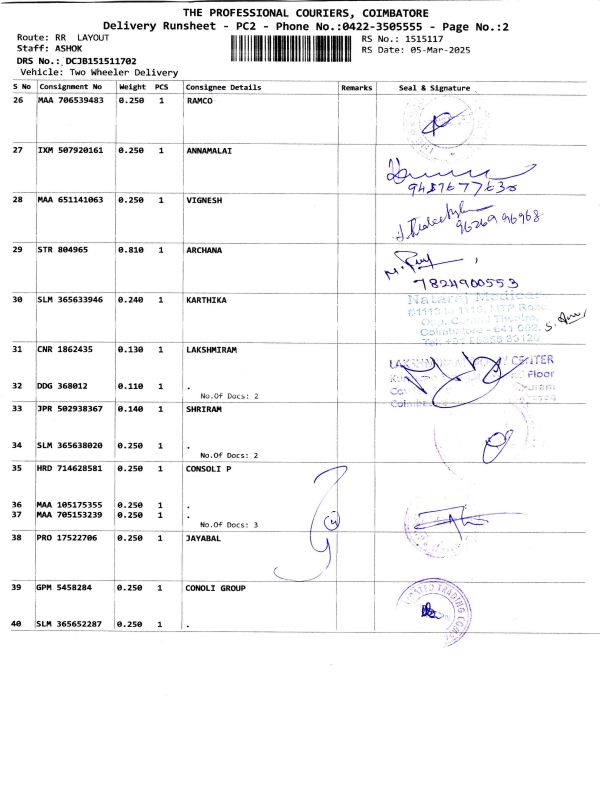 THE PROFESSIONAL COURIERS, COIMBATORE
Delivery Runsheet - PC2 - Phone No.:0422-3505555 - Page No.:2
Route: RR LAYOUT
RS No.: 1515117
Staff: ASHOK
RS Date: 05-Mar-2025
DRS No.: DCJB151511702
Vehicle: Two Wheeler Delivery
S No Consignment No Weight PCS Consignee Details Remarks Seal & Signature
26 MAA 706539483 0.250 1 RAMCO
27 IXM 507920161 0.250 1 ANNAMALAI
28 MAA 651141063 0.250 1 VIGNESH
9626996968
29 STR 804965 0.810 1 ARCHANA
7824900553
30 SLM 365633946 0.240 1 KARTHIKA
Nataraj Medicals
31 CNR 1862435 0.130 1 LAKSHMIRAM
CENTER
Floor
32 DDG 368012 0.110 1 .
No.Of Docs: 2
33 JPR 502938367 0.140 1 SHRIRAM
34 SLM 365638020 0.250 1 .
No.Of Docs: 2
35 HRD 714628581 0.250 1 CONSOLI P
36 MAA 105175355 0.250 1 .
37 MAA 705153239 0.250 1 .
No.Of Docs: 3
38 PRO 17522706 0.250 1 JAYABAL
39 GPM 5458284 0.250 1 CONOLI GROUP
TRADING
40 SLM 365652287 0.250 1 .